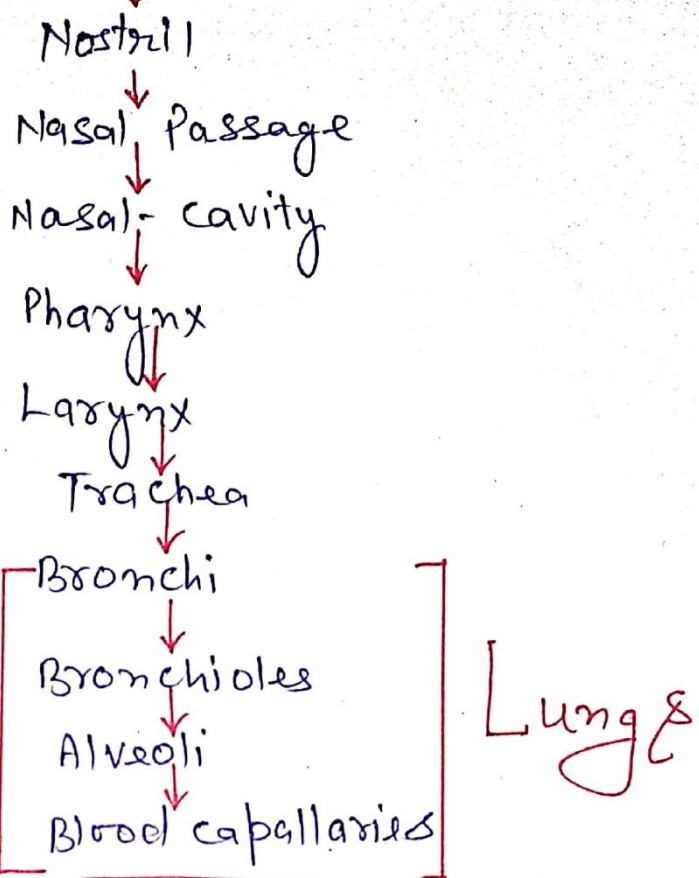 Nostrill
Nasal Passage
Nasal- cavity
Pharynx
Larynx
Trachea
Bronchi
Bronchioles
Alveoli
Blood capallaries
Lungs